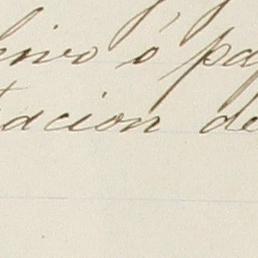 hivo ó pa
tacion de